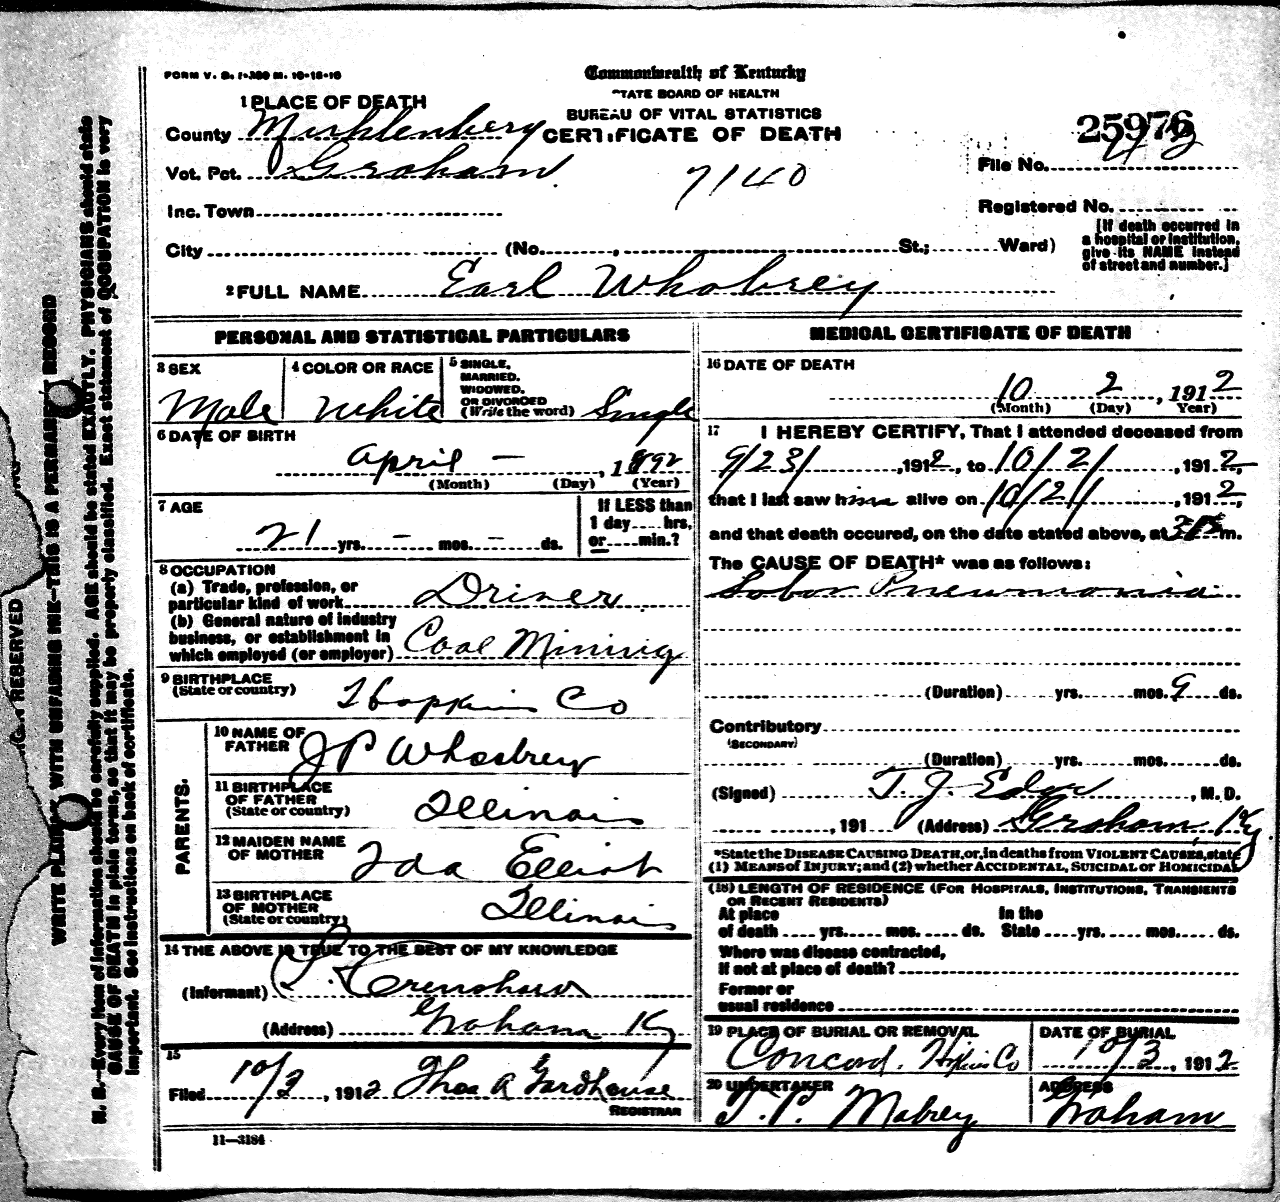 FORM V. S. 1-350 M. 10-15-10
Commonwealth of Kentucky
STATE BOARD OF HEALTH
BUREAU OF VITAL STATISTICS
CERTIFICATE OF DEATH
1 PLACE OF DEATH
County Muhlenberg
Vot. Pct. Graham
7140
25976
File No.
Inc. Town
Registered No.
City (No. , St.; Ward)
[If death occurred in
a hospital or institution,
give its NAME instead
of street and number.]
2 FULL NAME Earl Whobrey
PERSONAL AND STATISTICAL PARTICULARS
3 SEX
Male
4 COLOR OR RACE
White
5 SINGLE,
MARRIED,
WIDOWED,
OR DIVORCED
(Write the word) Single
6 DATE OF BIRTH
April – , 1892
(Month) (Day) (Year)
7 AGE
21 yrs. – mos. – ds.
If LESS than
1 day....hrs,
or....min.?
8 OCCUPATION
(a) Trade, profession, or
particular kind of work Driver
(b) General nature of industry
business, or establishment in
which employed (or employer) Coal Mining
9 BIRTHPLACE
(State or country) Hopkins Co
PARENTS.
10 NAME OF
FATHER J P Whosbrey
11 BIRTHPLACE
OF FATHER
(State or country) Illinois
12 MAIDEN NAME
OF MOTHER Ida Elliot
13 BIRTHPLACE
OF MOTHER
(State or country) Illinois
14 THE ABOVE IS TRUE TO THE BEST OF MY KNOWLEDGE
(Informant) Crenshaw
(Address) Graham Ky
15
Filed 10/3, 1912 Thos A Gardhouse
REGISTRAR
11—3184
MEDICAL CERTIFICATE OF DEATH
16 DATE OF DEATH
10 2 , 1912
(Month) (Day) Year)
17 I HEREBY CERTIFY, That I attended deceased from
9/23/ ,1912, to 10/2/ ,1912,
that I last saw him alive on 10/2/ ,1912,
and that death occured, on the date stated above, at m.
The CAUSE OF DEATH* was as follows:
Lobar Pneumonia
(Duration) yrs. mos. 9 ds.
Contributory
(SECONDARY)
(Duration) yrs. mos. ds.
(Signed) T. J. , M. D.
, 191 (Address) Graham, Ky
*State the DISEASE CAUSING DEATH, or, in deaths from VIOLENT CAUSES, state
(1) MEANS of INJURY; and (2) whether ACCIDENTAL, SUICIDAL or HOMICIDAL
(18) LENGTH OF RESIDENCE (FOR HOSPITALS, INSTITUTIONS, TRANSIENTS
OR RECENT RESIDENTS)
At place
of death yrs. mos. ds.
In the
State yrs. mos. ds.
Where was disease contracted,
If not at place of death?
Former or
usual residence
19 PLACE OF BURIAL OR REMOVAL
Concord. Hopkins Co
DATE OF BURIAL
10/3, 1912
20 UNDERTAKER
T. P. Mabrey
ADDRESS
Graham
RESERVED
WRITE PLAINLY WITH UNFADING INK—THIS IS A PERMANENT RECORD
N. B.—Every item of information should be carefully supplied. AGE should be stated EXACTLY. PHYSICIANS should state
CAUSE OF DEATH in plain terms, so that it may be properly classified. Exact statement of OCCUPATION is very
important. See instructions on back of certificate.